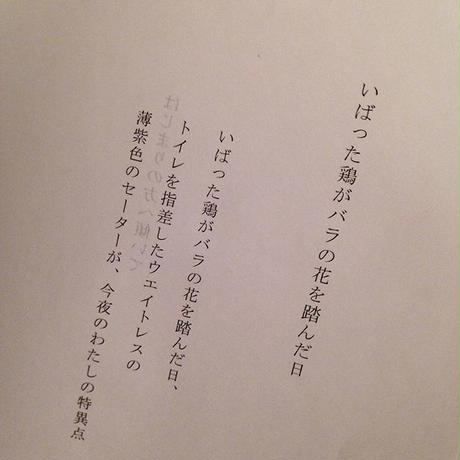 いばった鶏がバラの花を踏んだ日
いばった鶏がバラの花を踏んだ日、
トイレを指差したウエイトレスの
薄紫色のセーターが、今夜のわたしの特異点
はじまりの方へ傾いて